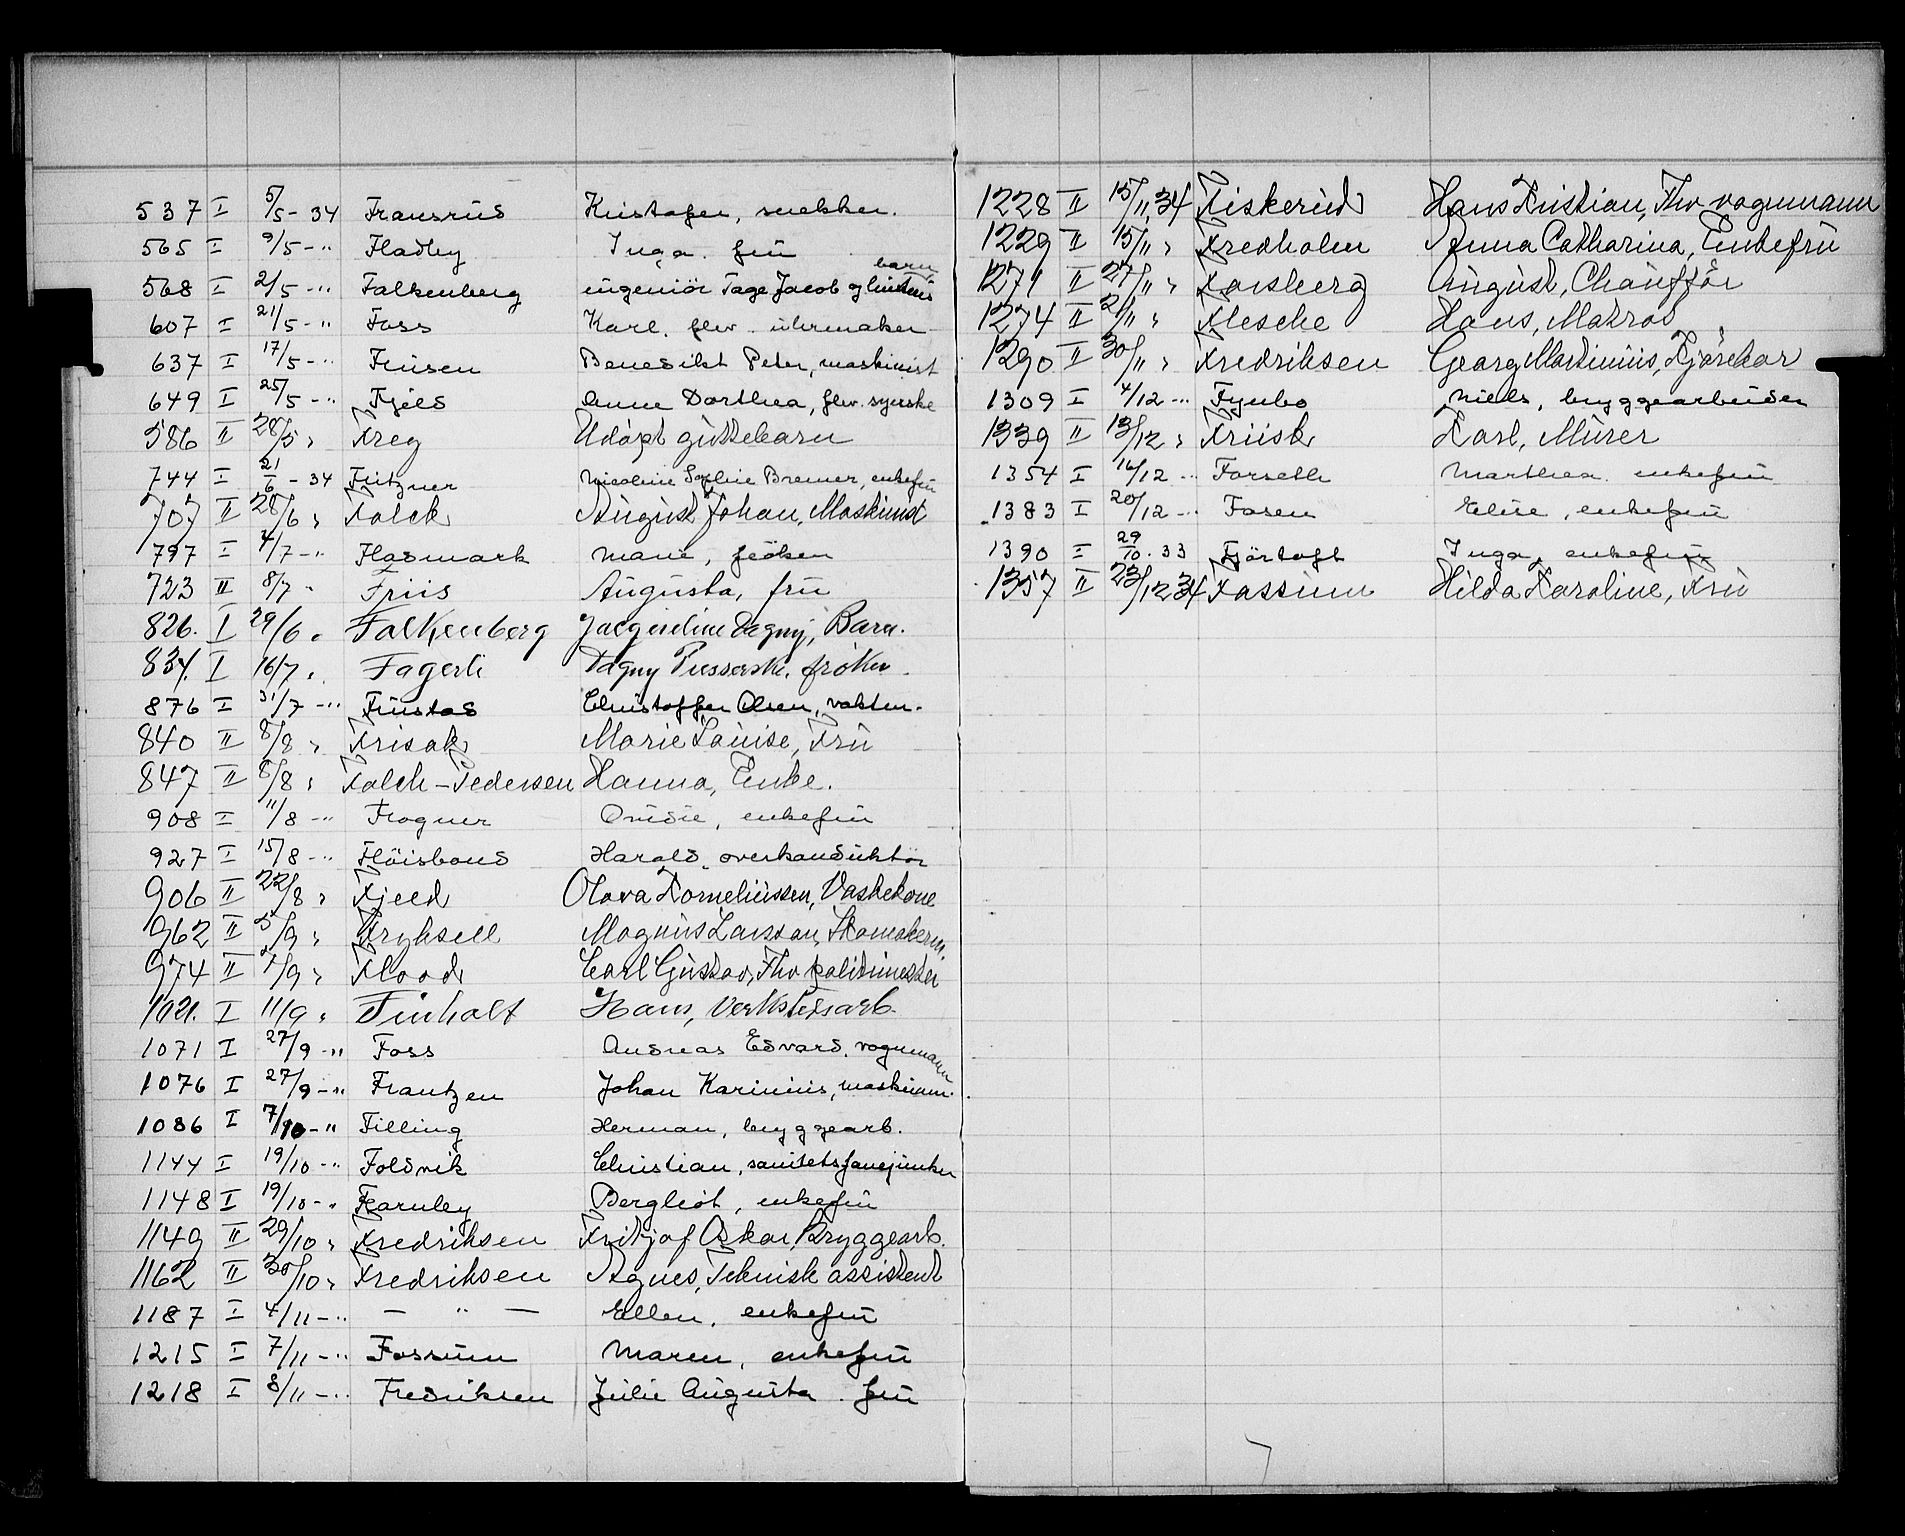 537 I 5/5 - 34 Fransrud Kristofer, snekker.
565 I 9/5 - " Fladby Inga. fru
568 I 2/5 - " Falkenberg ingeniör Tage Jacob og hustrus barn
607 I 21/5 - " Foss Karl. flw. uhrmaker
637 I 17/5 - " Friisen Benedikt Peter, maskinist
649 I 25/5 - " Fjeld Anne Dorthea, flw. syerske
586 II 28/5 " Frey Udöpt guttebarn
744 I 21/6 - 34 Fritzner Nicoline Sofie Bremer, enkefru
707 II 28/6 " Falck August Johan, Maskinist
797 I 4/7 - " Flasmark Marie, fröken
723 II 8/7 " Friis Augusta, fru
826. I 29/6 " Falkenberg Jacqueline Dagny, Barn.
834. I 16/7 " Fagerli Dagny, fröken
876 I 31/7 - " Furustad Christoffer Olsen, vaktm.
840 II 8/8 " Frisak Marie Louise, Fru
847 II 8/8 " Falch-Pedersen Hanna, Enke.
908 I 11/8 - " Frogner Ovidie, enkefru
927 I 15/8 - " Flöisbond Harald, overkonduktör
906 II 22/8 " Fjeld Olava Korneliussen, Vaskekone
962 II 5/9 " Fryksell Magnus Larsson, Skomakerm.
974 II 7/9 " Flood Carl Gustav, Fhv politimester
1021. I 11/9 " Finholt Hans, Verkstedsarb.
1071 I 27/9 - " Foss Andreas Edvard, vognmann
1076 I 27/9 - " Frantzen Johan Karinius, maskinm.
1086 I 7/10 - " Filling Herman, bryggearb.
1144 I 19/10 - " Foldvik Christian, sanitetsfanejunker
1148 I 19/10 - " Fearnley Bergliot, enkefru
1149 II 29/10 " Fredriksen Fritjof Oskar, Bryggearb.
1162 II 30/10 " Fredriksen Agnes, Teknisk assistent
1187 I 4/11 - " — " — Ellen, enkefru
1215 I 7/11 - " Fossum Maren, enkefru
1218 I 8/11 - " Fredriksen Julie Augusta. fru
1228 II 15/11 34 Fiskerud Hans Kristian, Fhv. vognmann
1229 II 15/11 " Fredholm Anna Catharina, Enkefru
1271 II 27/11 " Forsberg August, Chaufför
1274 II 2/11 " Flesche Hans, Matros
1290 II 30/11 " Fredriksen Georg Martinius, Kjörekar
1309 I 4/12 - " Fynbo Niels, bryggearbeider
1339 II 13/12 " Friisk Karl, Murer
1354 I 16/12 - " Forseth Marthea. enkefru
1383 I 20/12 - " Fosen Elise, enkefru
1390 I 29/10. 33 Fjörtoft Inga, enkefru
1357 II 23/12 34 Fossum Hilda Karoline, Fru